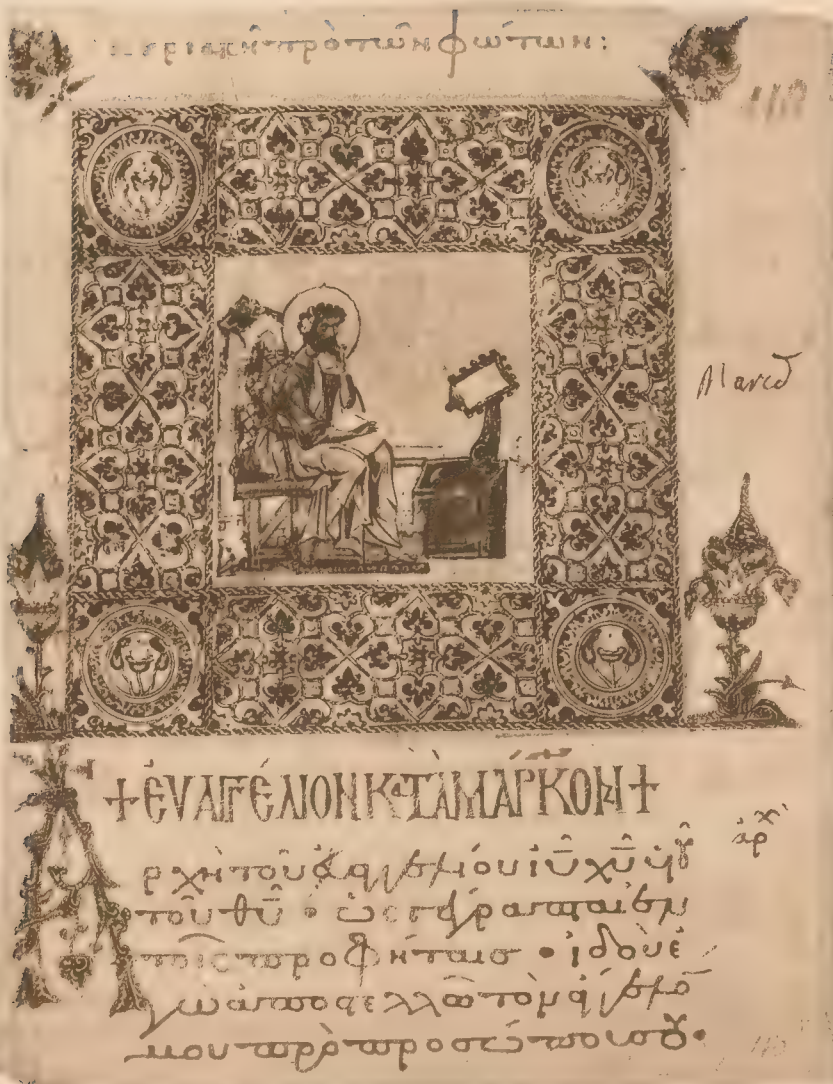 κυριακῆ πρὸ τῶν φώτων:
+ ΕΥΑΓΓΕΛΙΟΝ ΚΑΤΑ ΜΑΡΚΟΝ +
ἀρχ
Ἀρχὴ τοῦ εὐαγγελίου ἰῦ χῦ υἱοῦ
τοῦ θῦ · ὡς γέγραπται ἐν
τοῖς προφήταις · ἰδοὺ ἐ
γὼ ἀποστέλλω τὸν ἄγγελο
μου πρὸ προσώπου σου·